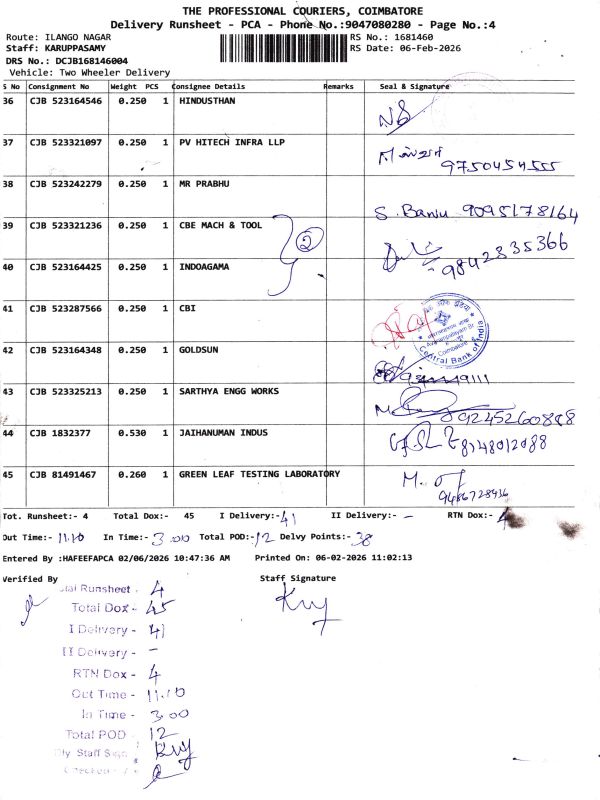 THE PROFESSIONAL COURIERS, COIMBATORE
Delivery Runsheet - PCA - Phone No.:9047080280 - Page No.:4
Route: ILANGO NAGAR RS No.: 1681460
Staff: KARUPPASAMY RS Date: 06-Feb-2026
DRS No.: DCJB168146004
Vehicle: Two Wheeler Delivery
S No Consignment No Weight PCS Consignee Details Remarks Seal & Signature
36 CJB 523164546 0.250 1 HINDUSTHAN
37 CJB 523321097 0.250 1 PV HITECH INFRA LLP 9750454555
38 CJB 523242279 0.250 1 MR PRABHU S. Banu 9095178164
39 CJB 523321236 0.250 1 CBE MACH & TOOL 2 9842835366
40 CJB 523164425 0.250 1 INDOAGAMA
41 CJB 523287566 0.250 1 CBI Central Bank of India Coimbatore
42 CJB 523164348 0.250 1 GOLDSUN
43 CJB 523325213 0.250 1 SARTHYA ENGG WORKS
44 CJB 1832377 0.530 1 JAIHANUMAN INDUS 8148012088
45 CJB 81491467 0.260 1 GREEN LEAF TESTING LABORATORY M.
Tot. Runsheet:- 4 Total Dox:- 45 I Delivery:- 41 II Delivery:- - RTN Dox:- 4
Out Time:- 11.10 In Time:- 3.00 Total POD:- 12 Delvy Points:- 38
Entered By :HAFEEFAPCA 02/06/2026 10:47:36 AM Printed On: 06-02-2026 11:02:13
Verified By Staff Signature
Total Runsheet - 4
Total Dox - 45
I Delivery - 41
II Delivery - -
RTN Dox - 4
Out Time - 11.10
In Time - 3.00
Total POD - 12
Dly Staff Sign